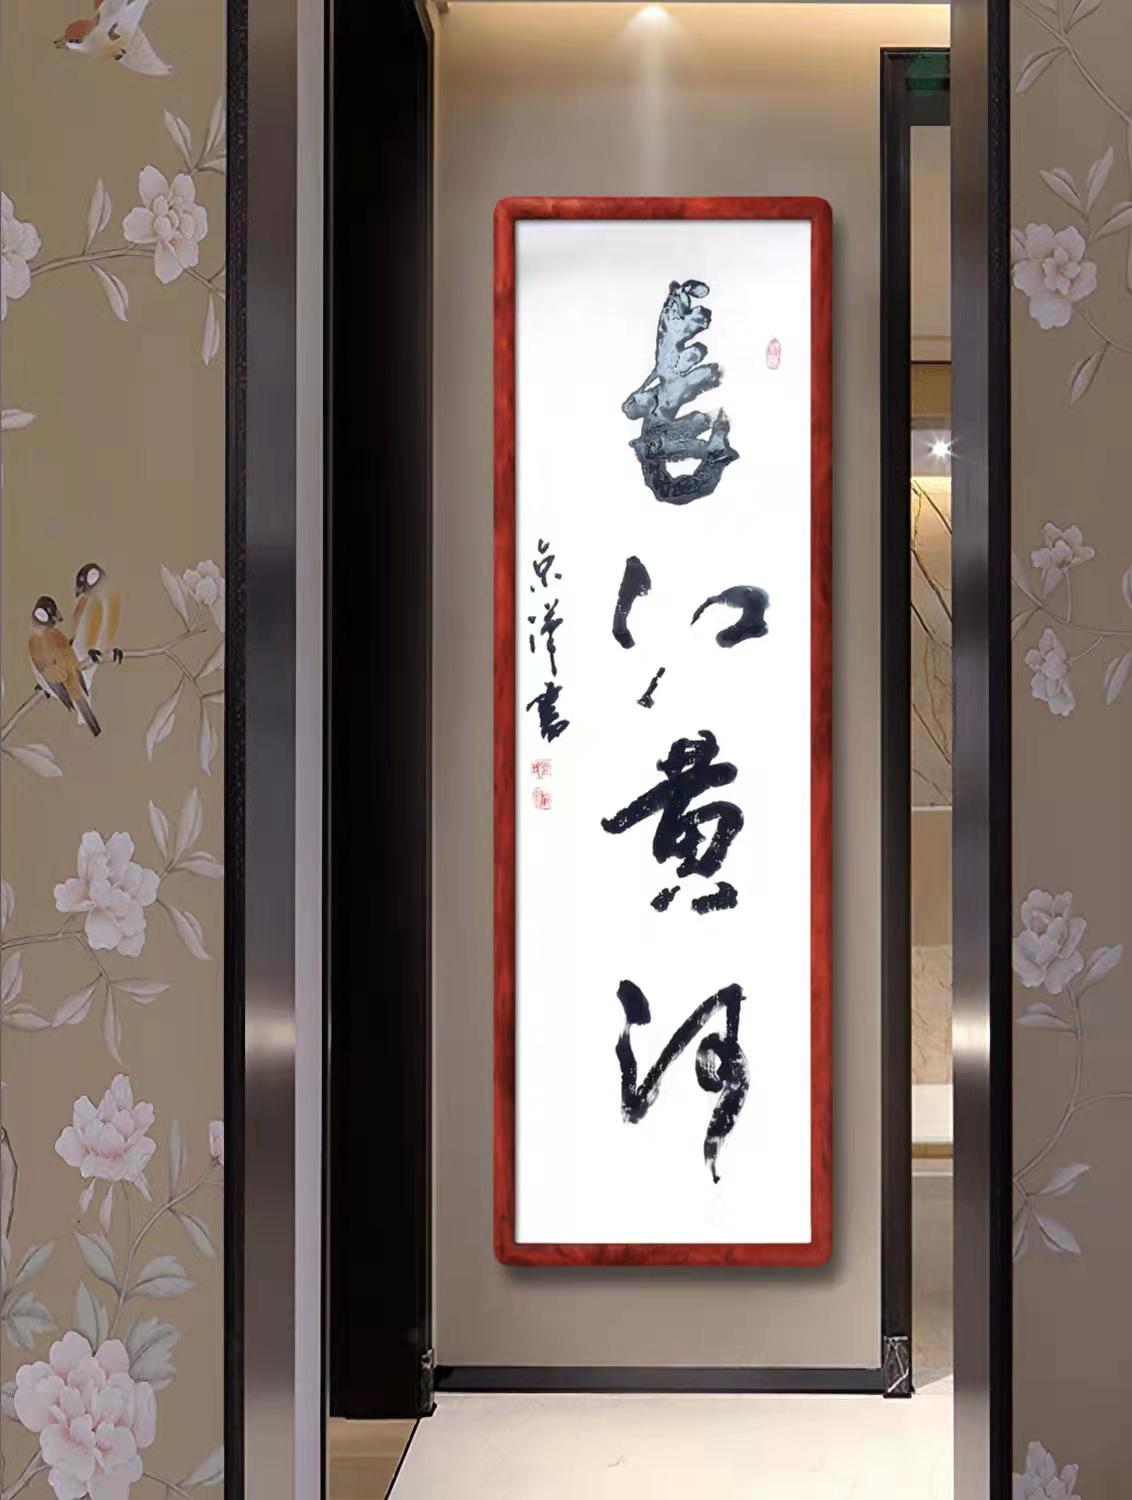 長江黄河
京洋書